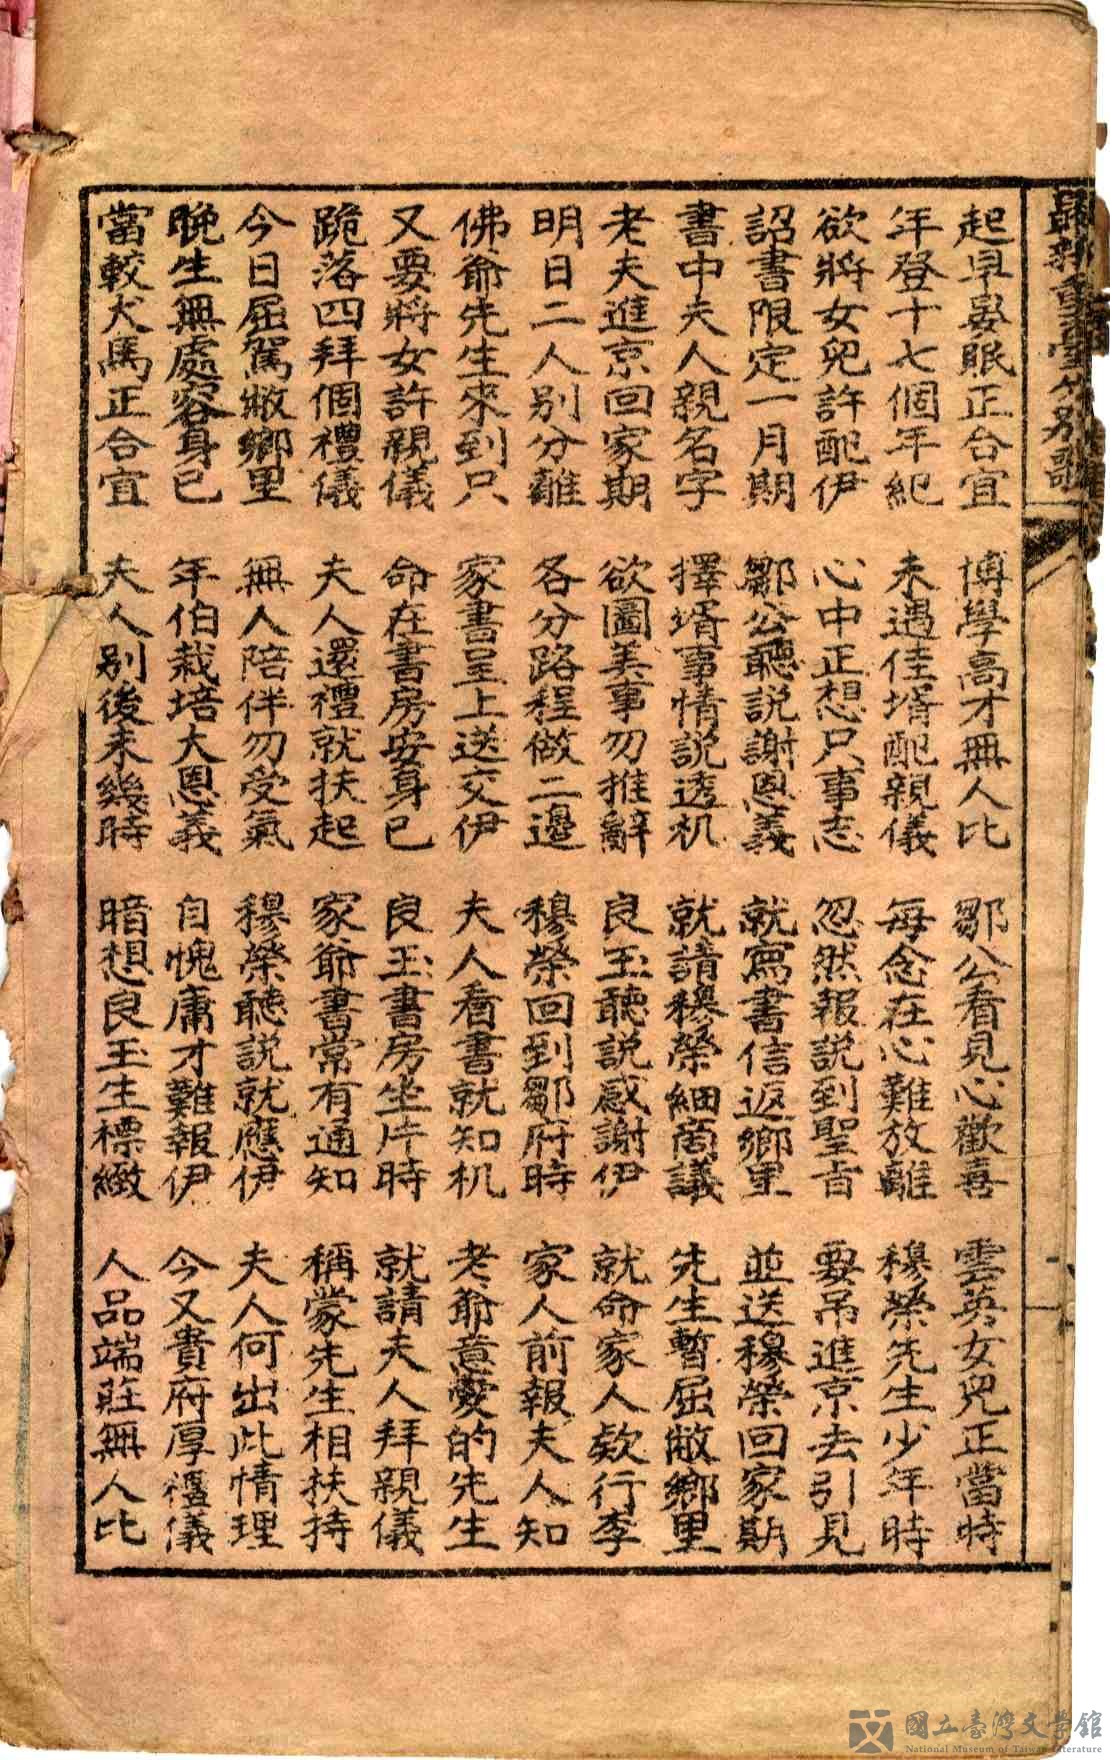 最新重臺分別歌
起早晏眠正合宜 博學高才無人比 鄒公看見心歡喜 雲英女兒正當時
年登十七個年紀 未遇佳壻配親儀 每念在心難放離 穆榮先生少年時
欲將女兒許配伊 心中正想只事志 忽然報說到聖旨 要吊進京去引見
詔書限定一月期 鄒公聽說謝恩義 就寫書信返鄉里 並送穆榮回家期
書中夫人親名字 擇壻事情說透机 就請穆榮細啇議 先生暫屈敝鄉里
老夫進京回家期 欲圖美事勿推辭 良玉聽說感謝伊 就命家人欵行李
明日二人別分離 各分路程做二邊 穆榮回到鄒府時 家人前報夫人知
佛爺先生來到只 家書呈上送交伊 夫人看書就知机 老爺意愛的先生
又要將女許親儀 命在書房安身已 良玉書房坐片時 就請夫人拜親儀
跪落四拜個禮儀 夫人還禮就扶起 家爺書常有通知 稱蒙先生相扶持
今日屈駕敝鄉里 無人陪伴勿受氣 穆榮聽說就應伊 夫人何出此情理
晚生無處容身已 年伯栽培大恩義 自愧庸才難報伊 今又貴府厚禮儀
當較犬馬正合宜 夫人別後未幾時 暗想良玉生標緻 人品端莊無人比
國立臺灣文學館
National Museum of Taiwan Literature